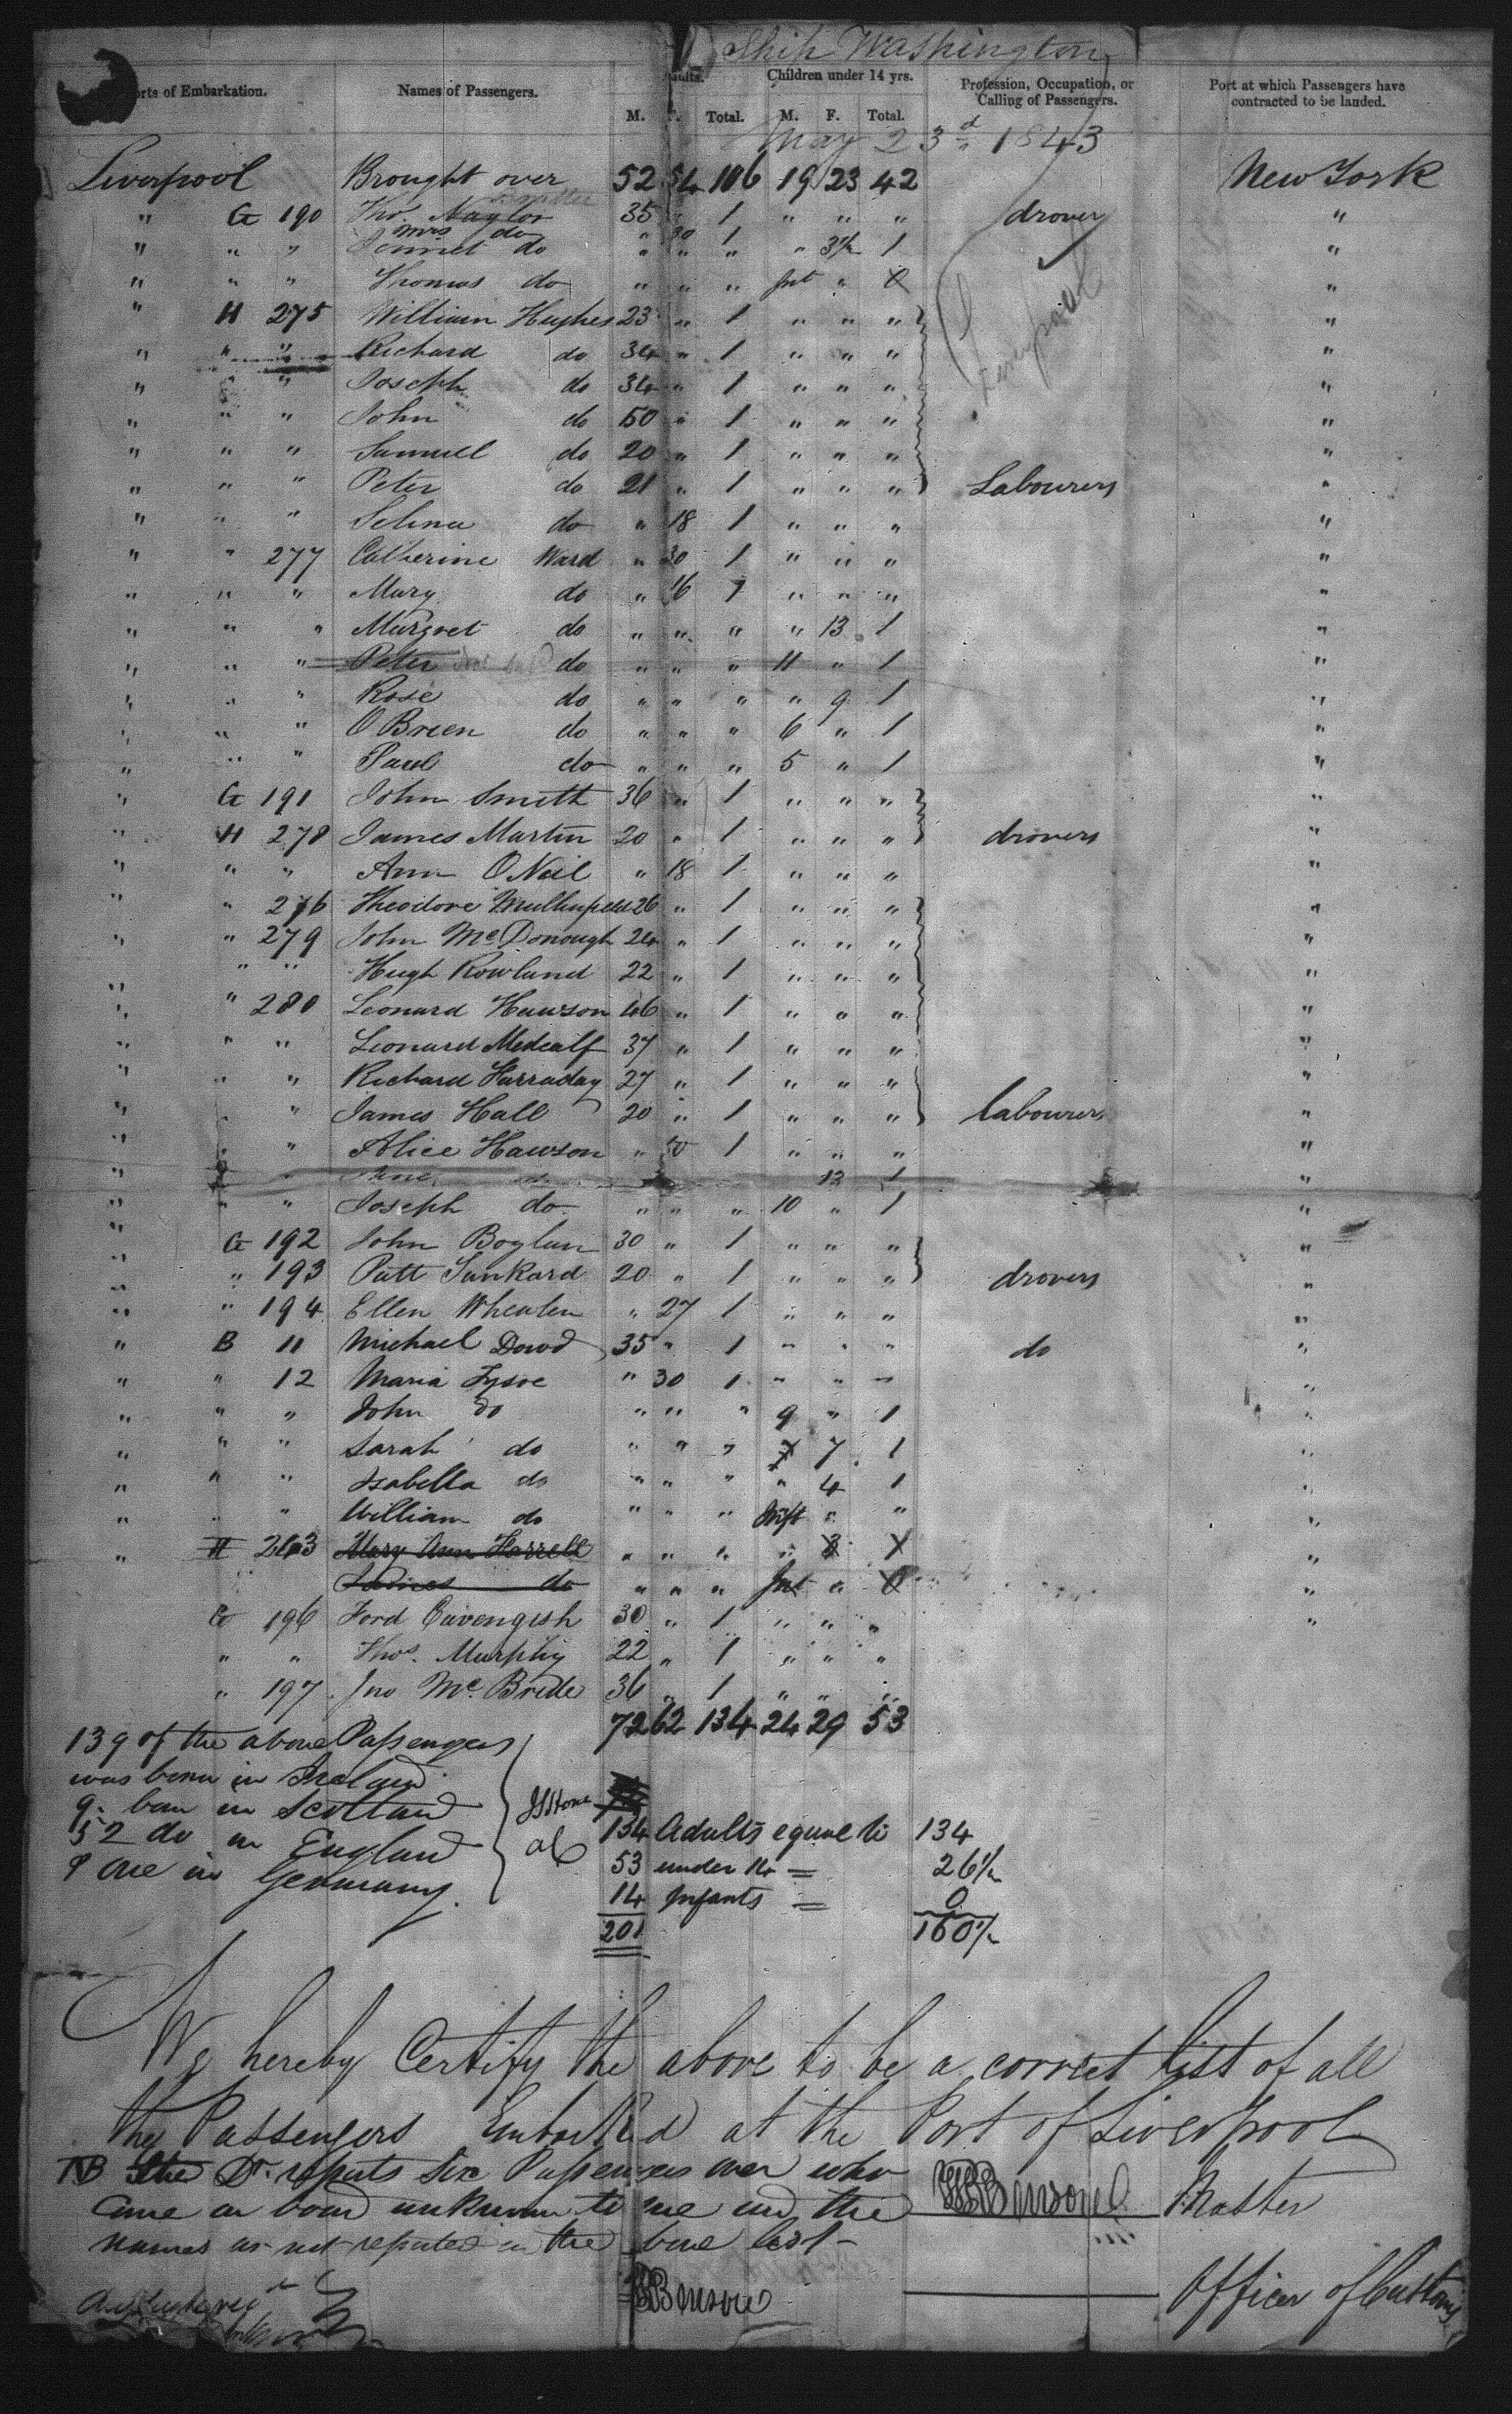 Ship Washington
Ports of Embarkation. Names of Passengers. Adults. Children under 14 yrs. Profession, Occupation, or Calling of Passengers. Port at which Passengers have contracted to be landed.
M. F. Total. M. F. Total.
May 23d 1843
Liverpool Brought over 52 54 106 19 23 42 New York
" G 190 Thos. Naylor 35 " 1 " " " drover "
Mrs do " 30 1
" " " do " " " " 3½ 1 "
" " " Thomas do " " " Inf " 0 "
Liverpool
" H 275 William Hughes 23 " 1 " " " "
" " " Richard do 34 " 1 " " " "
" " " Joseph do 34 " 1 " " " "
" " " John do 50 " 1 " " " "
" " " Samuel do 20 " 1 " " " "
" " " Peter do 21 " 1 " " " Labourers "
" " " Selina do " 18 1 " " " "
" " 277 Catherine Ward " 30 1 " " " "
" " " Mary do " 16 1 " " " "
" " " Margret do " " " " 13 1 "
" " " Peter do " " " 11 " 1 "
" " " Rose do " " " " 9 1 "
" " " O Brien do " " " 6 " 1 "
" " " Paul do " " " 5 " 1 "
" G 191 John Smith 36 " 1 " " " "
" H 278 James Martin 20 " 1 " " " drovers "
" " " Ann O Neil " 18 1 " " " "
" " 276 Theodore 26 " 1 " " " "
" " 279 John McDonough 24 " 1 " " " "
" " " Hugh Rowland 22 " 1 " " " "
" " 280 Leonard Hawson 46 " 1 " " " "
" " " Leonard Medcalf 37 " 1 " " " "
" " " Richard Harraday 27 " 1 " " " "
" " " James Hall 20 " 1 " " " labourers "
" " " Alice Hawson " 50 1 " " " "
" " Jane do 12 1 "
" " " Joseph do " " " 10 " 1 "
" G 192 John Boylan 30 " 1 " " " "
" " 193 Patt Sankard 20 " 1 " " " drovers "
" " 194 Ellen Whealen " 27 1 " " " "
" B 11 Michael Dowd 35 " 1 " " " do "
" " 12 Maria Tysoe " 30 1 " " " "
" " " John do " " " 9 " 1 "
" " " Sarah do " " " 7 1 "
" " " Isabella do " " " " 4 1 "
" " " William do " " " Inft " " "
" H 263 Mary Ann Farrell " " " " 8 X "
do " " " Inf " 0 "
G 196 Ford Cavengish 30 " 1 " " " "
" " Thos. Murphy 22 " 1 " " "
" 197 Jno McBride 36 " 1 " " "
72 62 134 24 29 53
139 of the above Passengers
was born in Ireland
9 born in Scotland
52 do in England
& one in Germany.
134 Adults equal to 134
53 under 14 = 26½
14 Infants = 0
201 160½
We hereby Certify the above to be a correct list of all
the Passengers Embarked at the Port of Liverpool
NB The Dr. reports Six Passengers over who
came on board unknown to me and the
names as not reported in the above list
Benson Master
Benson
Officer of Customs